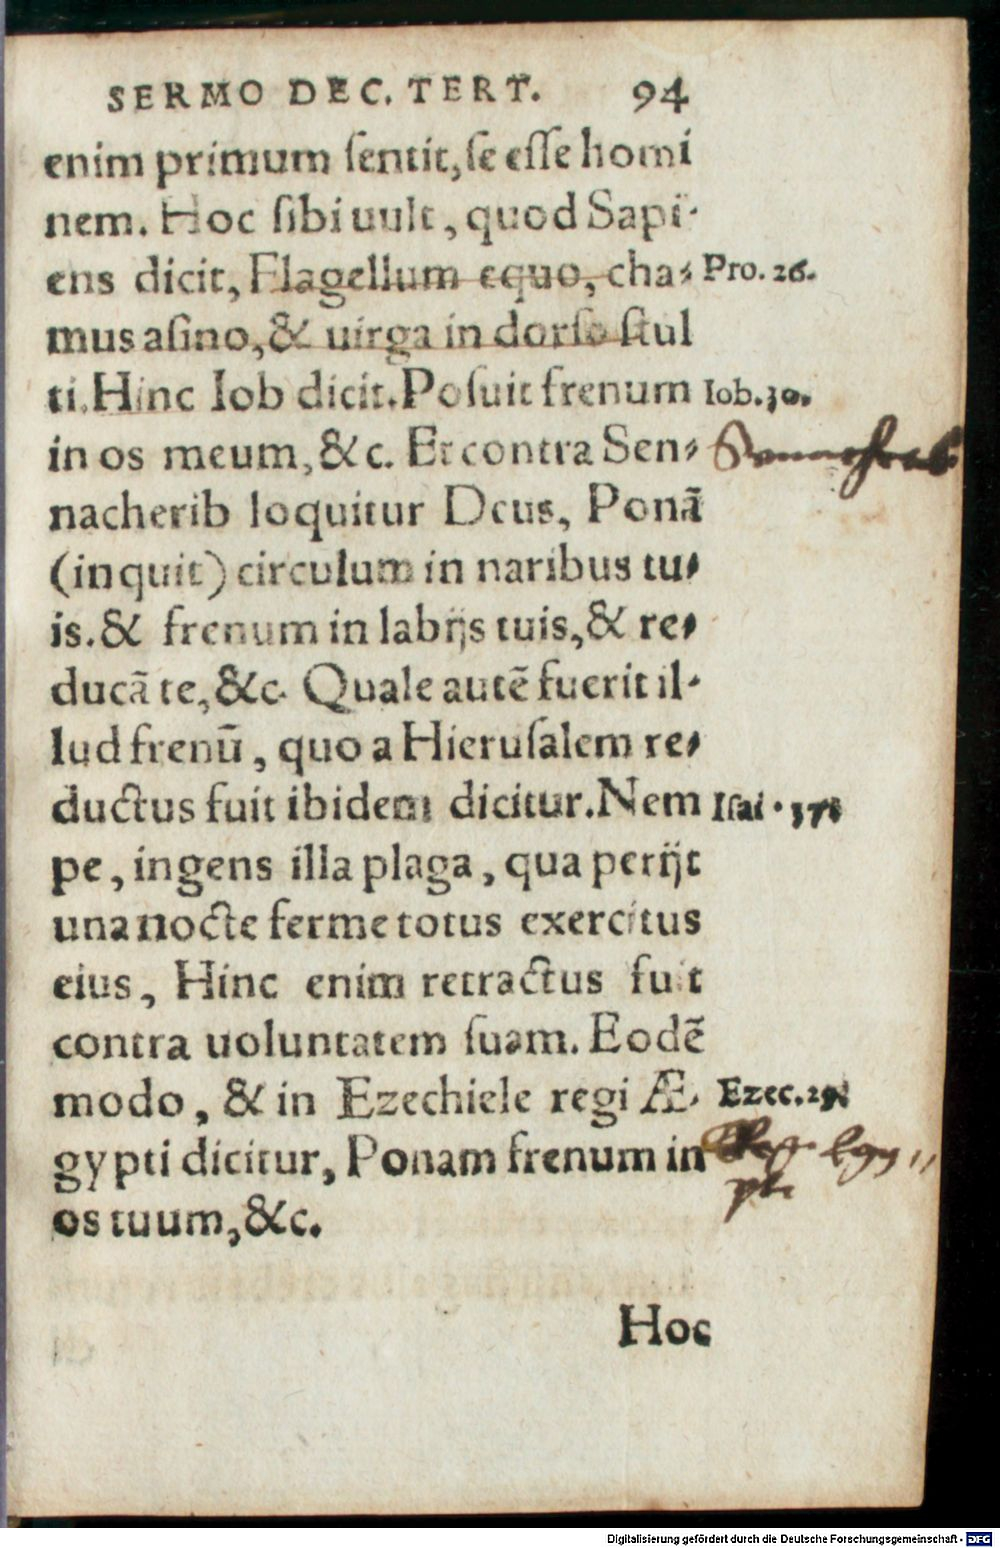 SERMO DEC. TERT. 94
enim primum ſentit, ſe eſſe homi
nem. Hoc ſibi uult, quod Sapi-
ens dicit, Flagellum equo, cha- Pro. 26.
mus aſino, & uirga in dorſo ſtul
ti. Hinc Iob dicit. Poſuit frenum Iob. 30.
in os meum, &c. Et contra Sen-
nacherib loquitur Deus, Ponā
(inquit) circulum in naribus tu-
is. & frenum in labijs tuis, & re-
ducā te, &c. Quale autē fuerit il-
lud frenū, quo a Hieruſalem re-
ductus fuit ibidem dicitur. Nem Iſai. 37
pe, ingens illa plaga, qua perijt
una nocte ferme totus exercitus
eius, Hinc enim retractus fuit
contra uoluntatem ſuam. Eodē
modo, & in Ezechiele regi Æ- Ezec. 29
gypti dicitur, Ponam frenum in
os tuum, &c.
Hoc
Digitalisierung gefördert durch die Deutsche Forschungsgemeinschaft - DFG